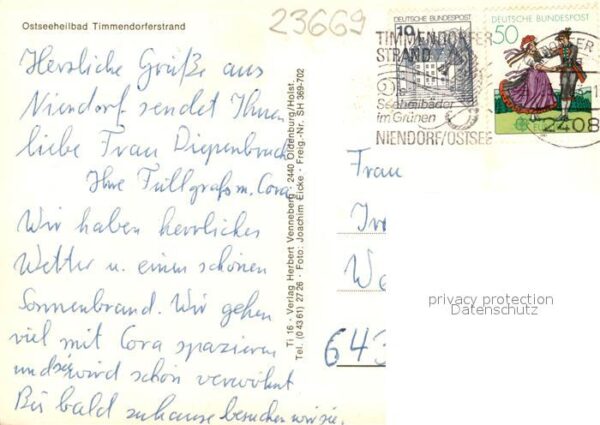 Ostseeheilbad Timmendorferstrand
23669
Herzliche Grüße aus
Niendorf sendet Ihnen
liebe Frau Diepenbruck
Ihre Füllgrafs m. Cora
Wir haben herrliches
Wetter u. einen schönen
Sonnenbrand. Wir gehen
viel mit Cora spazieren
und sie wird schön verwöhnt
Bis bald zuhause besuchen wir sie.
Ti 16 - Verlag Herbert Venneberg · 2440 Oldenburg/Holst.
Tel. (0 43 61) 27 26 - Foto: Joachim Eicke - Freig.-Nr. SH 369-702
10 DEUTSCHE BUNDESPOST
DEUTSCHE BUNDESPOST
50
TIMMENDORFER
STRAND
Seeheilbäder
im Grünen
NIENDORF/OSTSEE
2408
Frau
643
privacy protection
Datenschutz